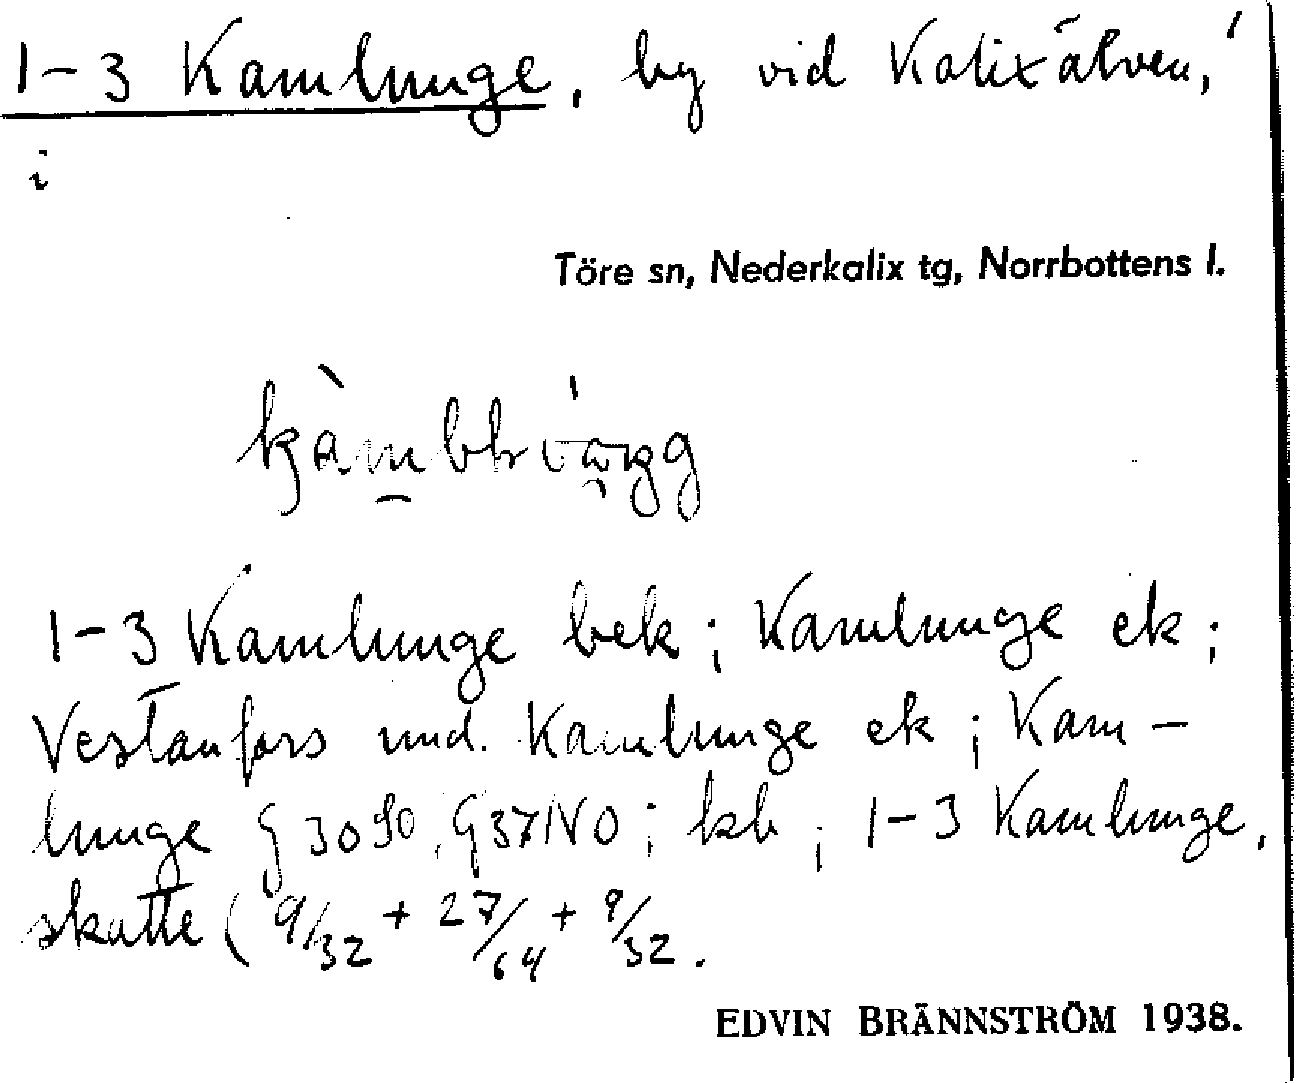 1-3 Kamlunge, by vid Kalixälven,
i
Töre sn, Nederkalix tg, Norrbottens l.
1-3 Kamlunge bek; Kamlunge ek;
Vestanfors und. Kamlunge ek; Kam-
lunge G 30 SO, G 37 NO; kb; 1-3 Kamlunge,
skatte ( 9/32 + 27/64 + 9/32.
EDVIN BRÄNNSTRÖM 1938.